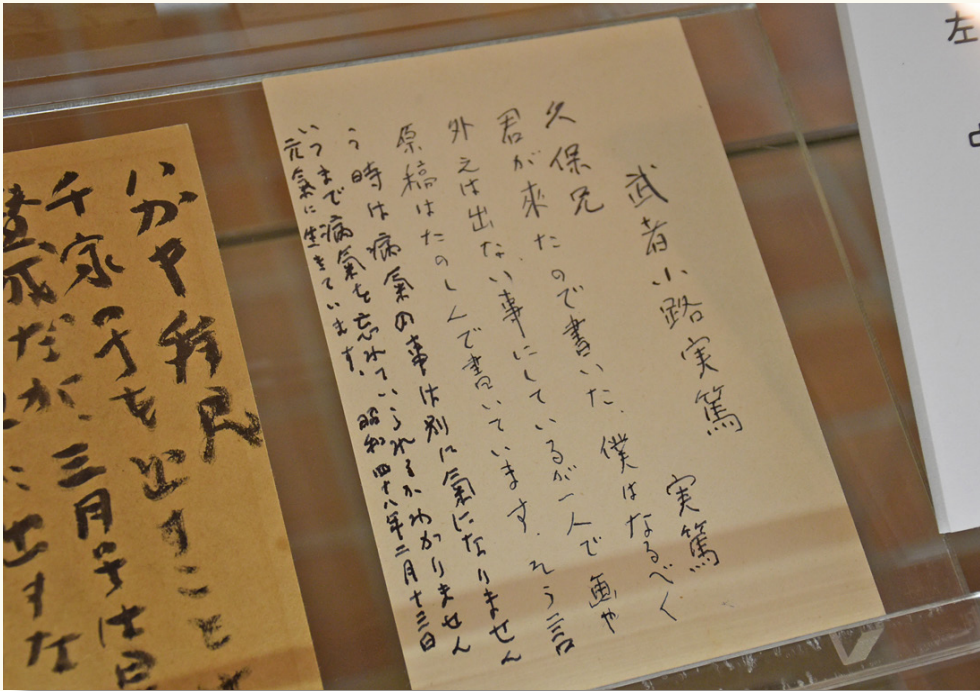 左
武者小路実篤　実篤
久保兄
君が来たので書いた、僕はなるべく
外えは出ない事にしているが一人で画や
原稿はたのしんで書いています。そう言
う時は病氣の事は別に氣になりません
いつまで病氣を忘れていられるかわかりません
元氣に生きています。　昭和四十八年二月十三日
ハガキ拝見
千家号を出すこと
賛成だが、三月号は
に出すな